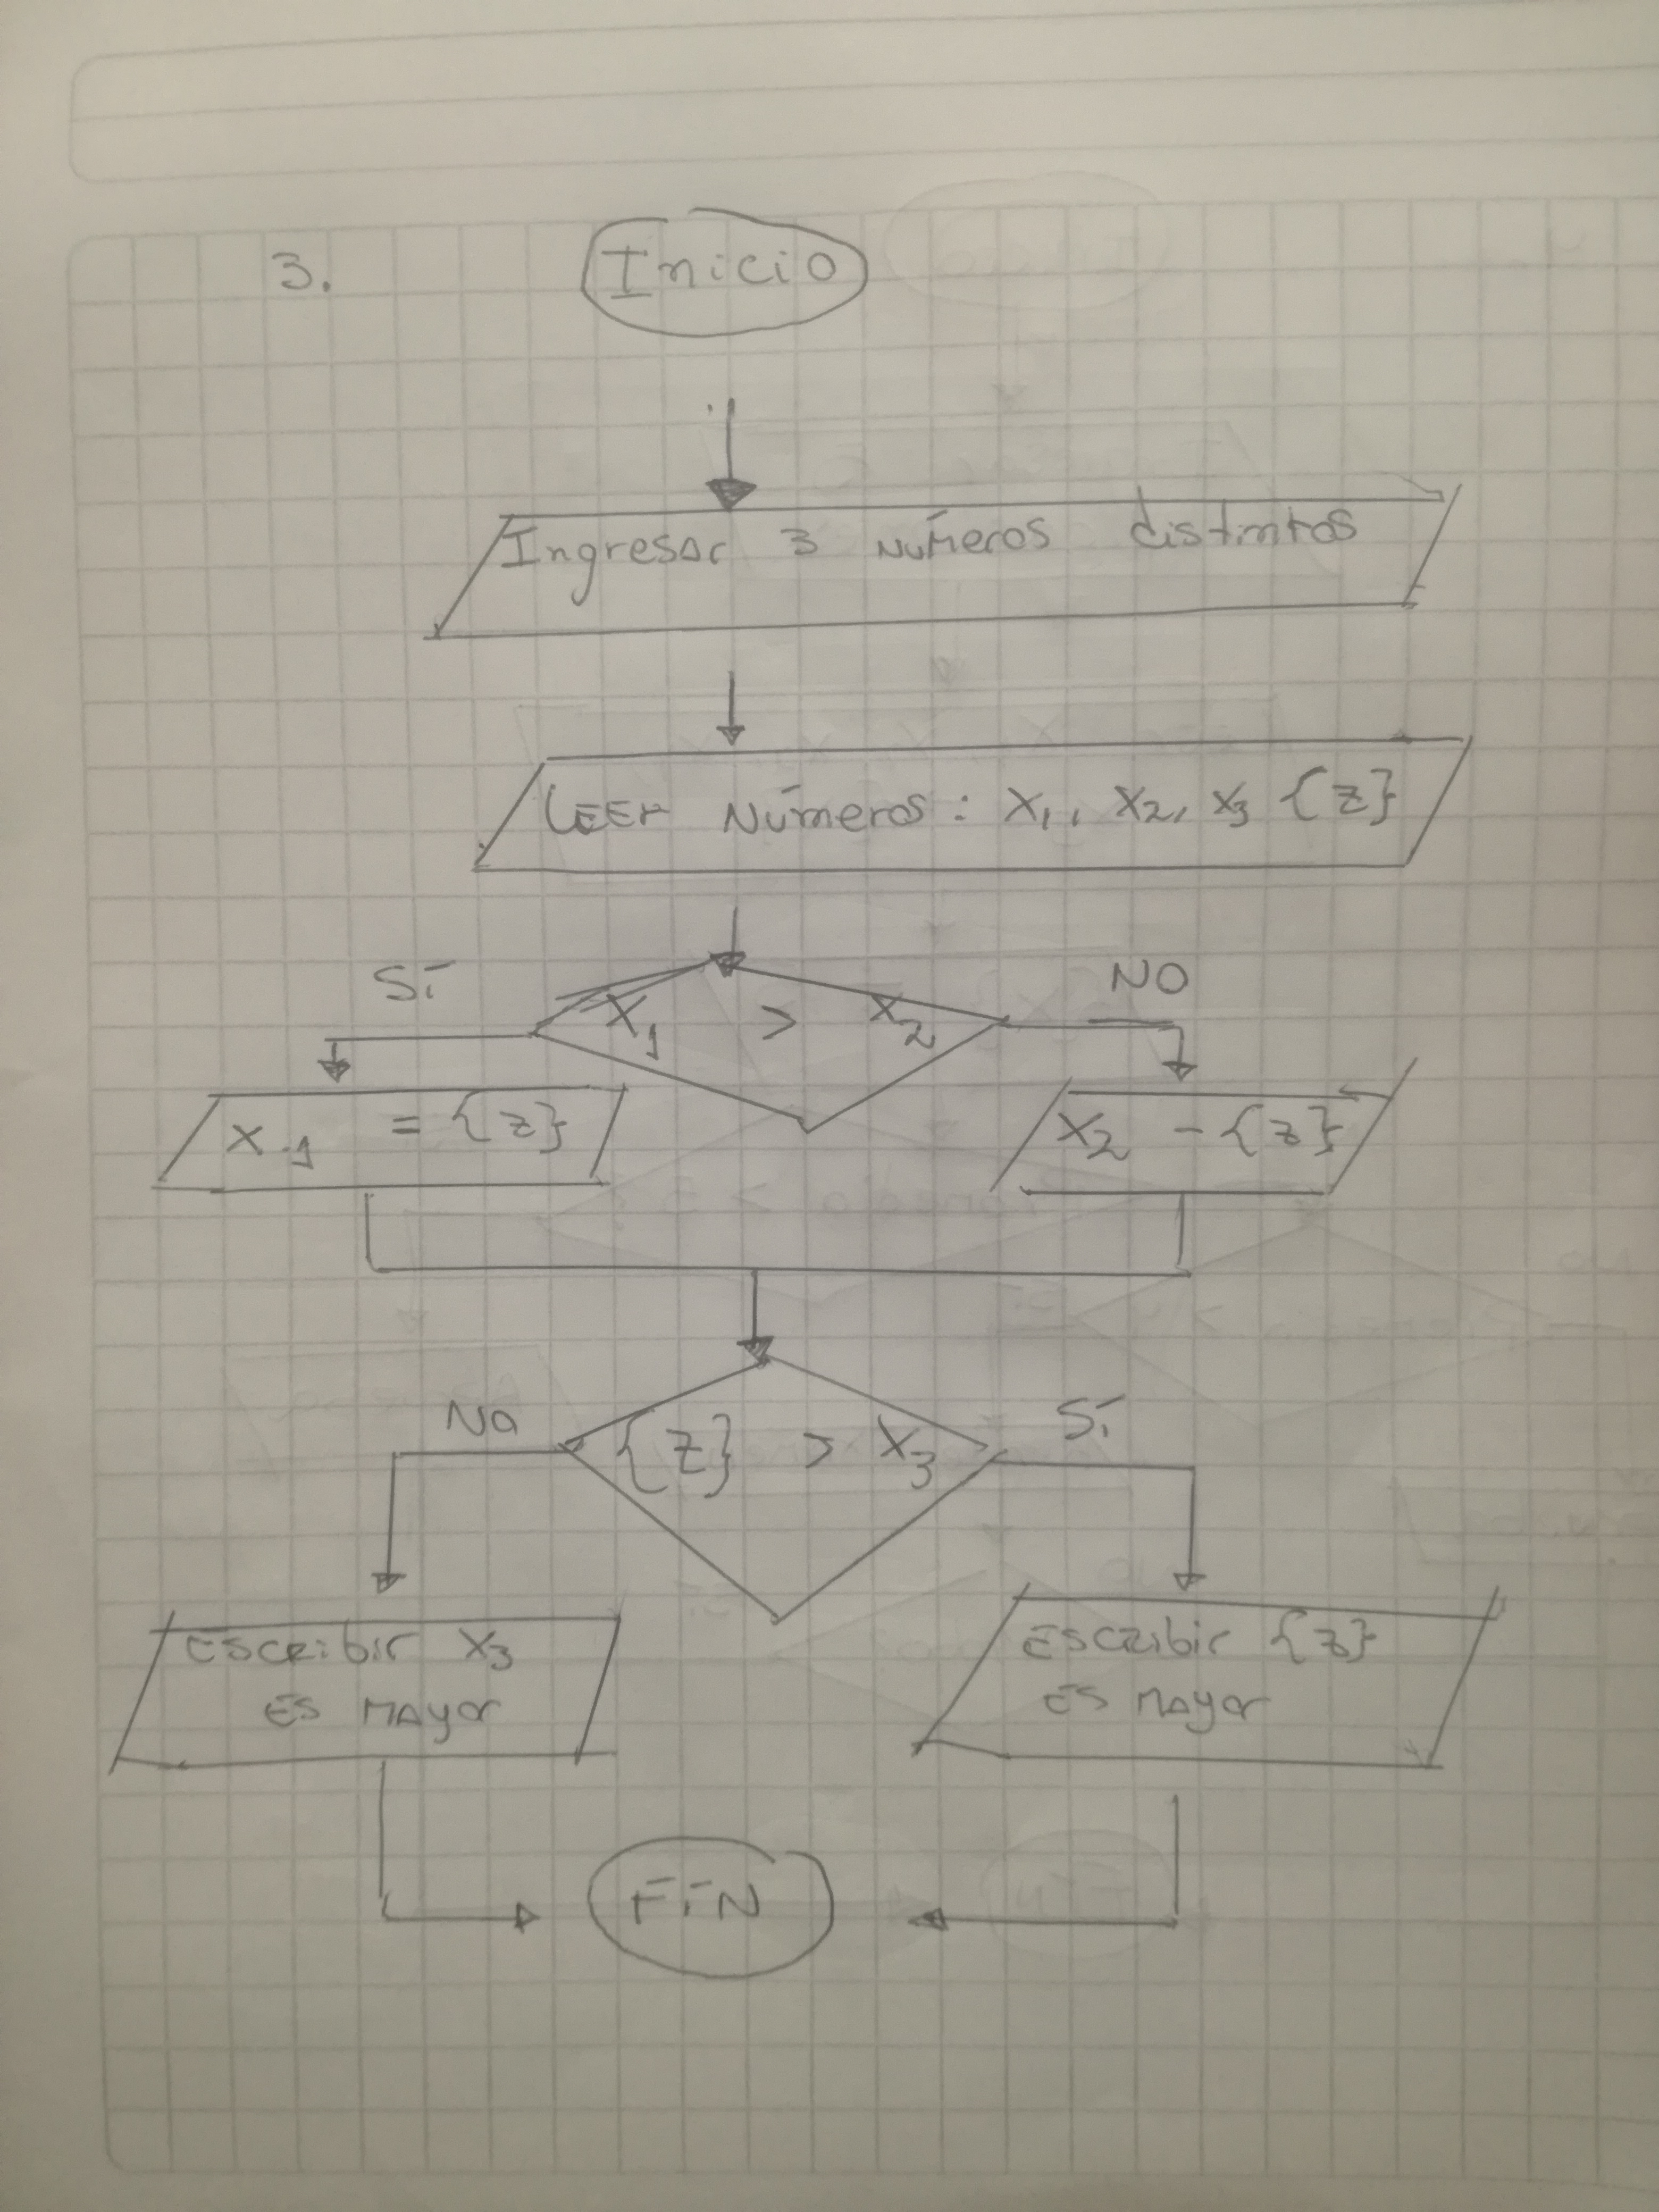 3.
Inicio
Ingresar 3 números distintos
Leer Números: X1, X2, X3 {z}
Sí
NO
X1 > X2
X1 = {z}
X2 - {z}
No
Sí
{z} > X3
Escribir X3
es mayor
Escribir {z}
es mayor
FIN